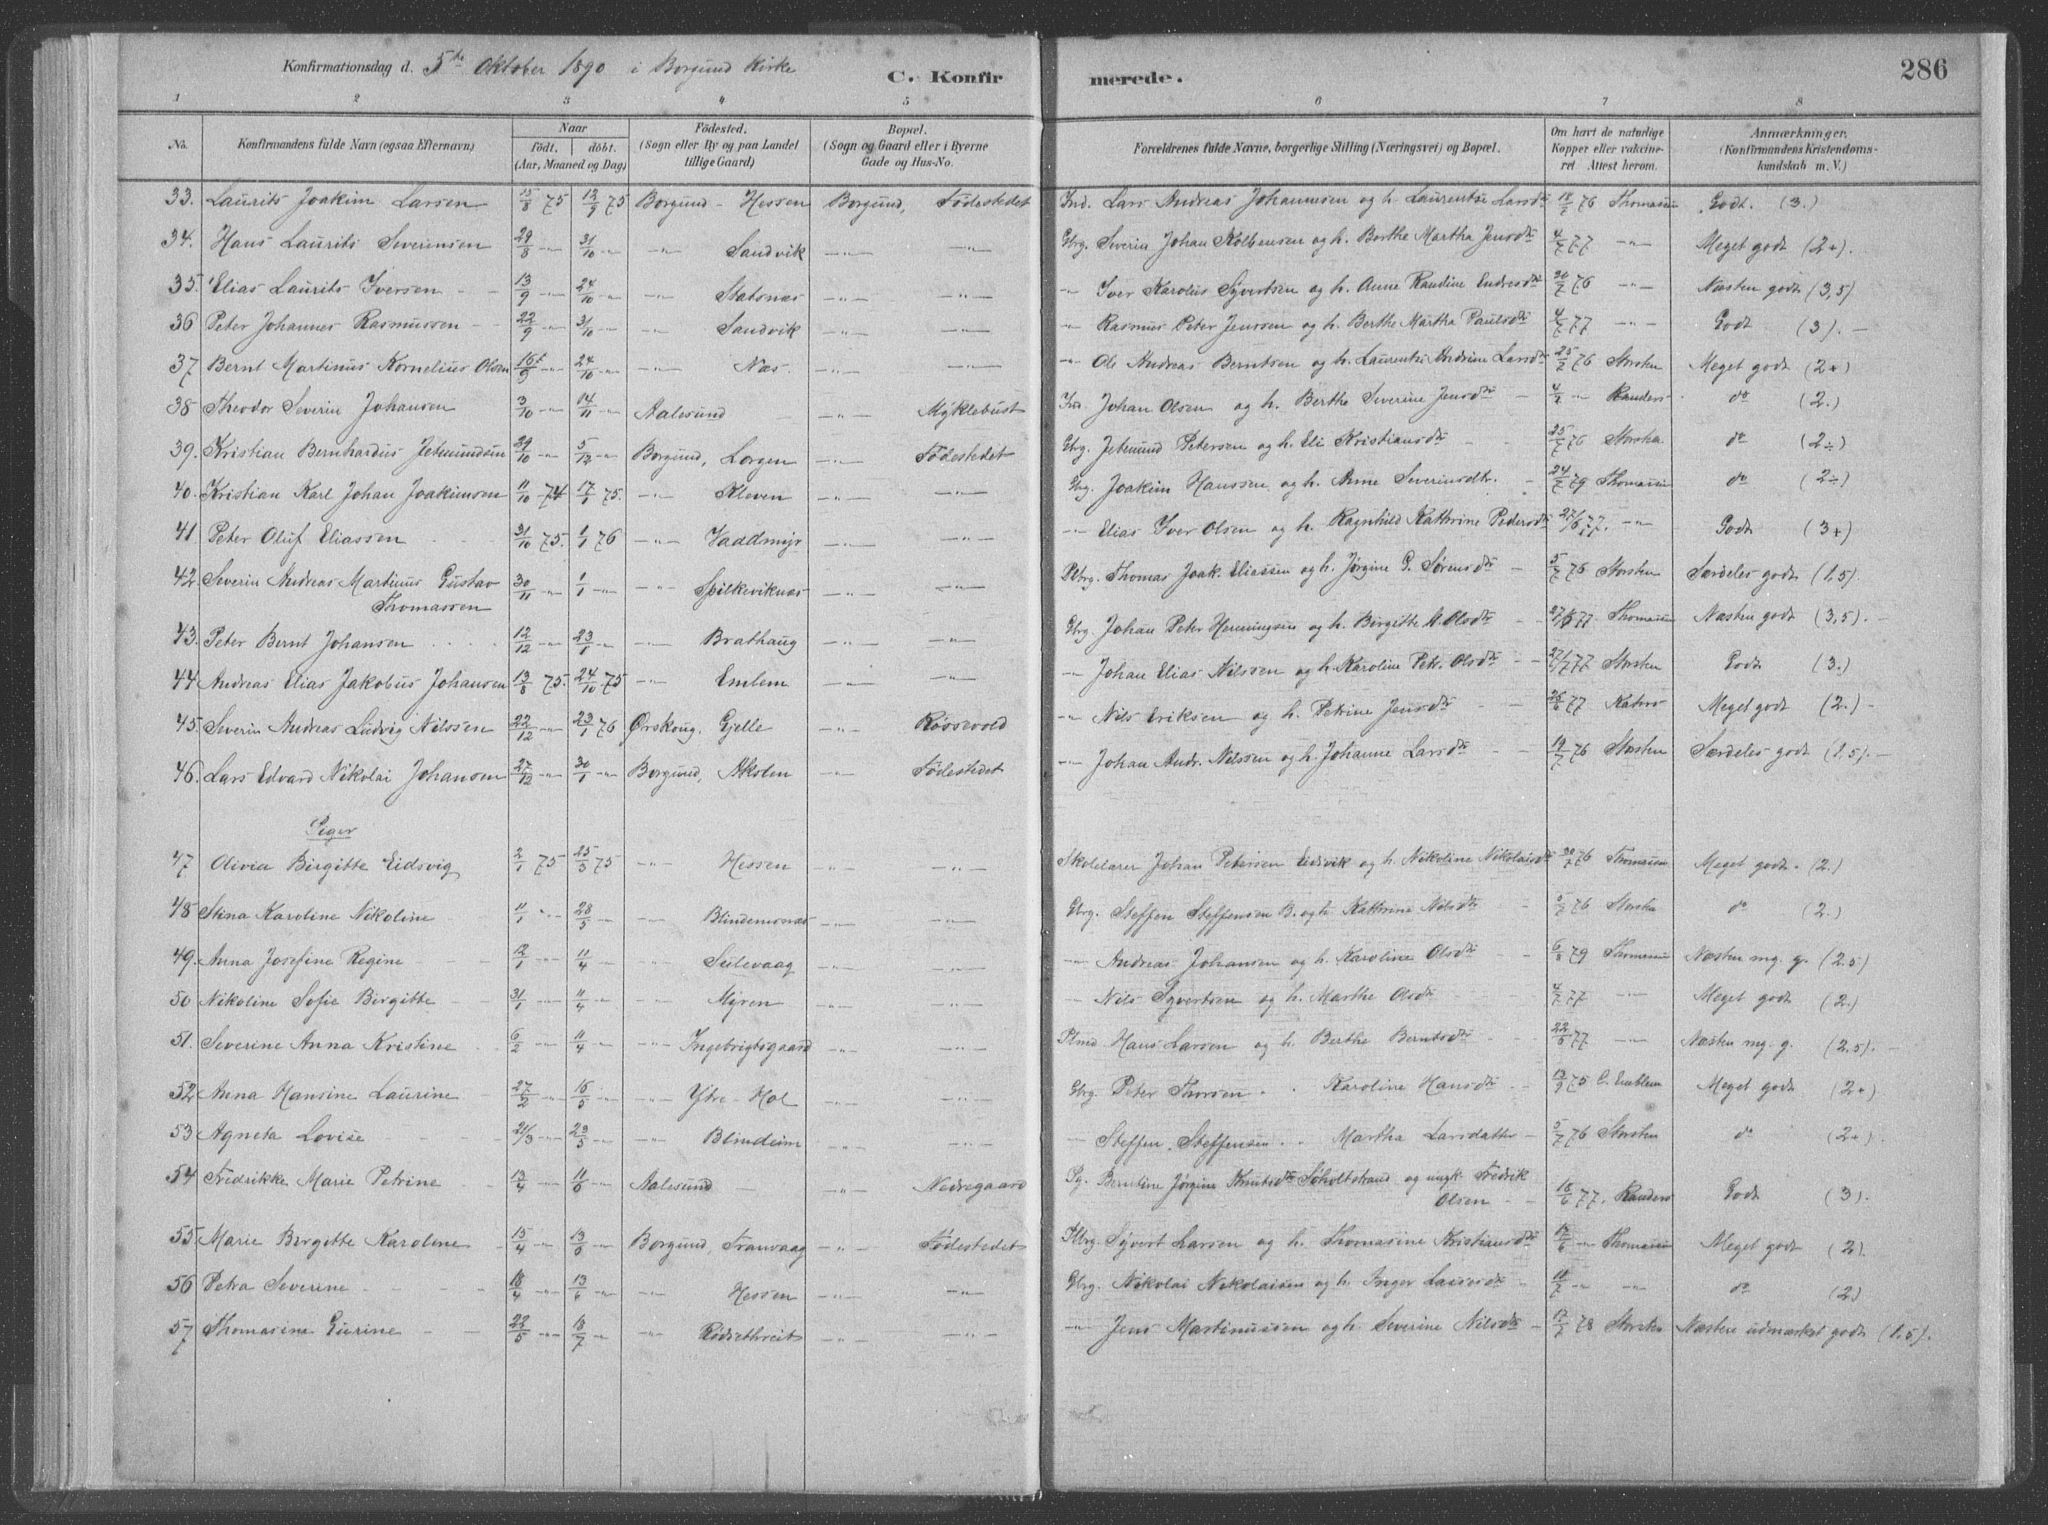 Konfirmationsdag d. 5te Oktober 1890 i Borgund Kirke C. Konfirmerede. 286
1 2 3 4 5 6 7 8
No. Konfirmandens fulde Navn (ogsaa Efternavn) Naar født, døbt. (Aar, Maaned og Dag) Födested. (Sogn eller By og paa Landet tillige Gaard) Bopæl. (Sogn og Gaard eller i Byerne Gade og Hus-No. Forældrenes fulde Navne, borgerlige Stilling (Næringsvei) og Bopæl. Om havt de naturlige Kopper eller vakcineret Attest herom. Anmærkninger. (Konfirmandens Kristendomskundskab m. V.)
33. Laurits Joakim Larsen 15/8 75 12/9 75 Borgund - Hessen Borgund, Födestedet Ind. Lars Andreas Johannesen og h. Laurentse Larsdtr 76 Thomassen Godt. (3.)
34. Hans Laurits Severinsen 29/8 -"- 31/10 -"- -"- Sandvik -"- -"- Gbrg. Severin Johan Kolbensen og h. Berthe Martha Jensdtr 4/7 77 -"- Meget godt (2+).
35. Elias Laurits Iversen 13/9 -"- 24/10 -"- -"- Slatsnæs -"- -"- -"- Iver Karolus Syvertsen og h. Anne Randine Endresdtr 20/7 76 -"- Næsten godt (3,5)
36 Peter Johannes Rasmussen 22/9 -"- 31/10 -"- -"- Sandvik -"- -"- -"- Rasmus Peter Jenssen og h. Berthe Martha Paulsdtr 4/7 77 -"- Godt (3).
37. Bernt Martinus Kornelius Olsen 16/9 -"- 24/10 -"- -"- Næs. -"- -"- -"- Ole Andreas Berntsen og h. Laurentse Andrine Larsdtr 25/7 76 Storsten Meget godt (2+)
38 Theodor Severin Johansen 3/10 -"- 14/11 -"- Aalesund -"- Myklebust Ind. Johan Olsen og h. Berthe Severine Jensdtr 4/7 -"- Randers do (2.)
39. Kristian Bernhardus Jetmundsen 29/10 -"- 5/12 -"- Borgund, Lorgen -"- Födestedet Gbrg. Jetmund Petersen og h. Eli Kristiansdtr 25/7 76 Storsten do (2÷)
40. Kristian Karl Johan Joakimsen 11/10 74 17/1 75. -"- Kleven -"- -"- Gbrg. Joakim Hanssen og h. Anne Severinsdtr. 24/7 79 Thomassen do (2÷)
41 Peter Oluf Eliassen 31/10 75. 1/1 76 -"- Vaddmyr -"- -"- -"- Elias Iver Olsen og h. Ragnhild Kathrine Pedersdtr 27/6 77. -"- Godt (3+)
42. Severin Andreas Martinus Gustav Thomassen 30/11 -"- 1/1 -"- -"- Spilkeviknæs -"- -"- Thomas Joak. Eliassen og h. Jørgine P. Sørensdtr 5/7 76 Storsten Særdeles godt (1,5).
43. Peter Bernt Johansen 12/12 -"- 23/1 -"- -"- Brathaug -"- -"- Gbrg. Johan Peter Henningsen og h. Birgitte M. Olsdtr 77 Thomassen Næsten godt (3,5).
44 Andreas Elias Jakobus Johansen 13/8 75. 24/10 75 -"- Emlem -"- -"- -"- Johan Elias Nilssen og h. Karoline Pet. Olsdtr 27/7 77 Storsten Godt (3.)
45. Severin Andreas Ludvig Nilssen 22/12 -"- 23/1 76 Ørskoug. Gjelle -"- Røssevold -"- Nils Eriksen og h. Petrine Jensdtr 26/6 77 Kahrs Meget godt (2.)
46. Lars Edvard Nikolai Johansen 27/12 -"- 30/1 -"- Borgund, Akslen -"- Födestedet -"- Johan Andr. Nilssen og h. Johanne Larsdtr 19/7 76 Storsten Særdeles godt (1.5).
Piger
47 Olivia Birgitte Eidsvig 2/1 75 25/3 75 -"- Hessen -"- -"- Skolelærer Johan Petersen Eidsvik og h. Nikoline Nikolaisdtr 20/7 76 Thomassen Meget godt. (2.)
48 Stina Karoline Nikoline 11/1 -"- 28/3 -"- Blindemsnæs -"- -"- Gbrg. Steffen Steffensen B. og h. Kathrine Nilsdtr 5/7 76 Storsten do (2.)
49. Anna Josefine Regine 12/1 -"- 11/4 -"- Sulevaag -"- -"- -"- Andreas Johansen og h. Karoline Olsdtr 6/8 79 Thomassen Næsten mg. g. (2.5)
50 Nikoline Sofie Birgitte 31/1 -"- 11/4 -"- Myren -"- -"- -"- Nils Syvertsen og h. Marthe Olsdtr 4/7 77 -"- Meget godt (2.)
51. Severine Anna Kristine 6/2 -"- 11/4 -"- -"- Ingebrigtsgaard -"- -"- Plmd Hans Larsen og h. Berthe Berntsdtr 22/5 77 -"- Næsten mg. g. (2.5).
52 Anna Hansine Laurine 27/2 -"- 16/5 -"- -"- Ytre-Hol -"- -"- Gbrg. Peter Thorsen " " Karoline Hansdtr 13/9 75 C. Emblem Meget godt (2+)
53 Agneta Lovise 21/3 -"- 23/5 -"- -"- Blindeim -"- -"- -"- Steffen Steffensen " " Martha Larsdatter 5/7 76 Storsten do (2+)
54 Fredrikke Marie Petrine 13/4 -"- 11/6 -"- Aalesund -"- Nedregaard Pg. Berntine Jørgine Knutsdtr Søholtstrand og ungk Fredrik Olsen 18/6 77. Randers Godt (3).
55. Marie Birgitte Karoline 15/4 -"- 13/6 -"- Borgund, Tranvaag -"- Födestedet Syvert Larsen og h. Thomasine Kristiansdtr -"- Thomassen Meget godt (2).
56 Petra Severine 18/4 -"- 13/6 -"- -"- Hessen -"- -"- Gbrg. Nikolai Nikolaisen og h. Inger Larsdtr -"- -"- do (2.)
57 Thomasine Gurine 22/5 -"- 18/7 -"- -"- Rødsethreit -"- -"- -"- Jens Martinussen og h. Severine Nilsdtr 17/7 78 Storsten Næsten udmærket godt (1.5).